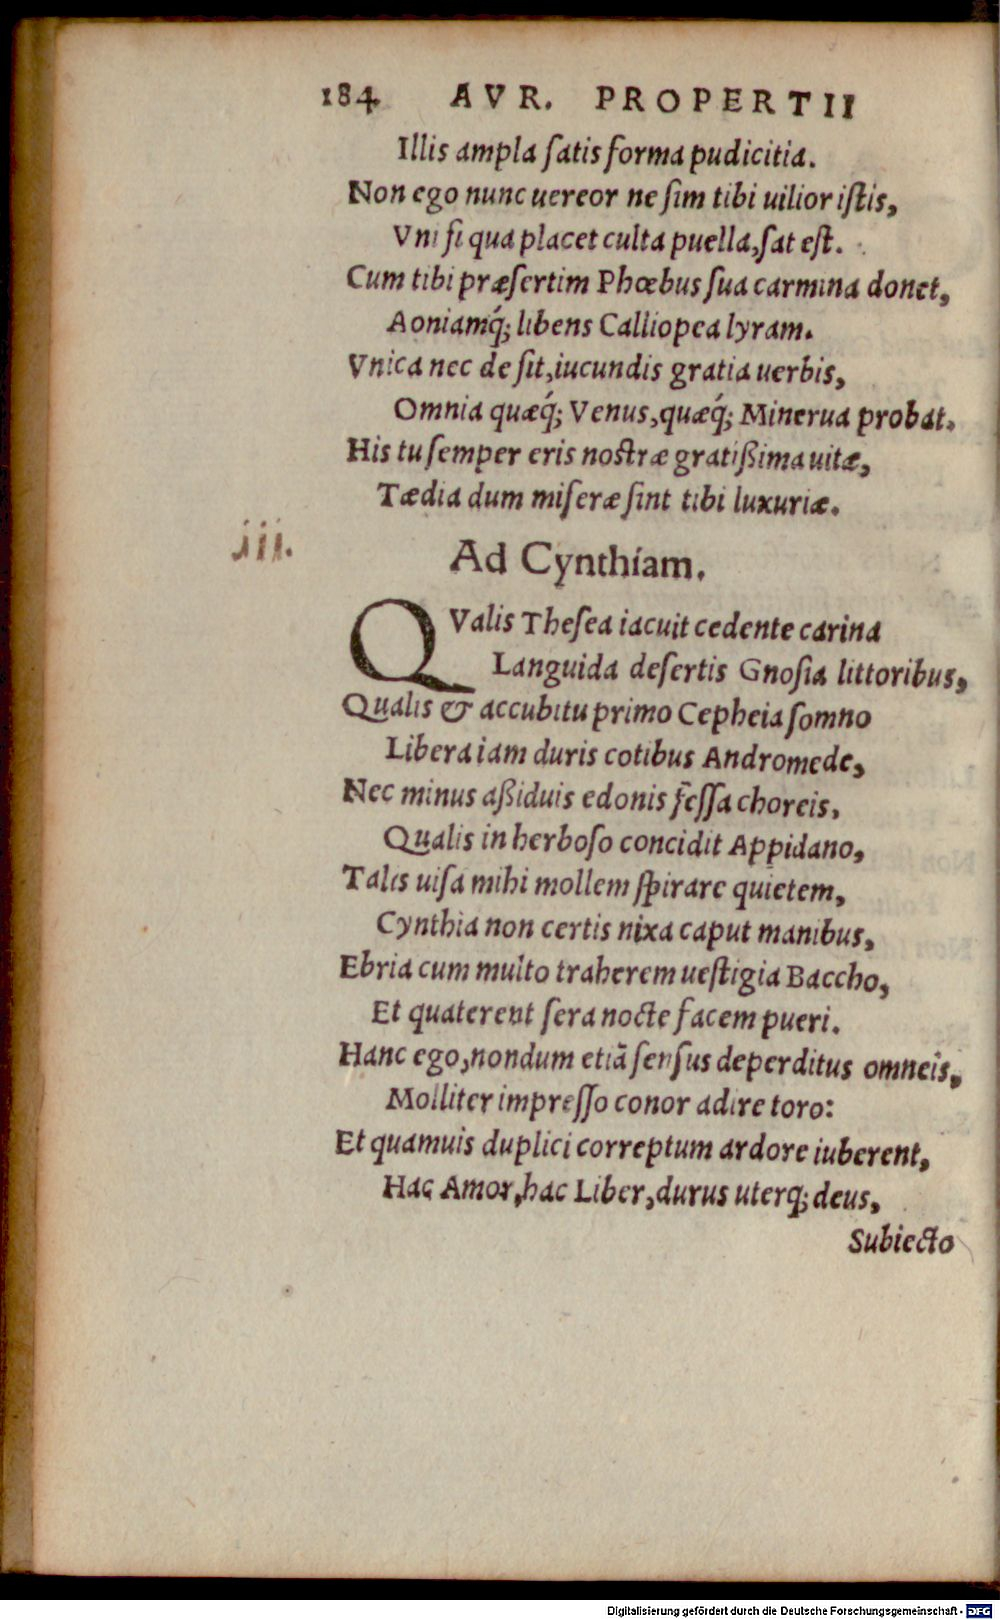 184 AVR. PROPERTII
Illis ampla ſatis forma pudicitia.
Non ego nunc uereor ne ſim tibi uilior iſtis,
Vni ſi qua placet culta puella, ſat eſt.
Cum tibi præſertim Phœbus ſua carmina donet,
Aoniamq́; libens Calliopea lyram.
Vnica nec deſit, iucundis gratia uerbis,
Omnia quæq́; Venus, quæq́; Minerua probat.
His tu ſemper eris nostræ gratißima uitæ,
Tædia dum miſeræ ſint tibi luxuriæ.
iii.
Ad Cynthiam.
QValis Theſea iacuit cedente carina
Languida deſertis Gnoſia littoribus,
Qualis & accubitu primo Cepheia ſomno
Libera iam duris cotibus Andromede,
Nec minus aßiduis edonis feſſa choreis,
Qualis in herboſo concidit Appidano,
Talis uiſa mihi mollem ſpirare quietem,
Cynthia non certis nixa caput manibus,
Ebria cum multo traherem ueſtigia Baccho,
Et quaterent ſera nocte facem pueri.
Hanc ego, nondum etiã ſenſus deperditus omneis,
Molliter impreſſo conor adire toro:
Et quamuis duplici correptum ardore iuberent,
Hac Amor, hac Liber, durus uterq; deus,
Subiecto
Digitalisierung gefördert durch die Deutsche Forschungsgemeinschaft - DFG